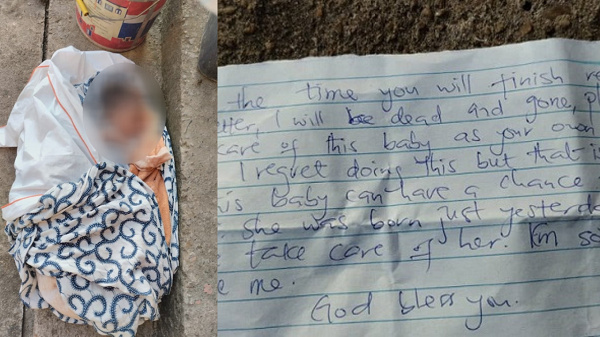 the time you will finish re
tter, I will be dead and gone, pl
care of this baby as your own
I regret doing this but that is
is baby can have a chance
she was born just yesterda
take care of her. I'm so
e me.
God bless you.